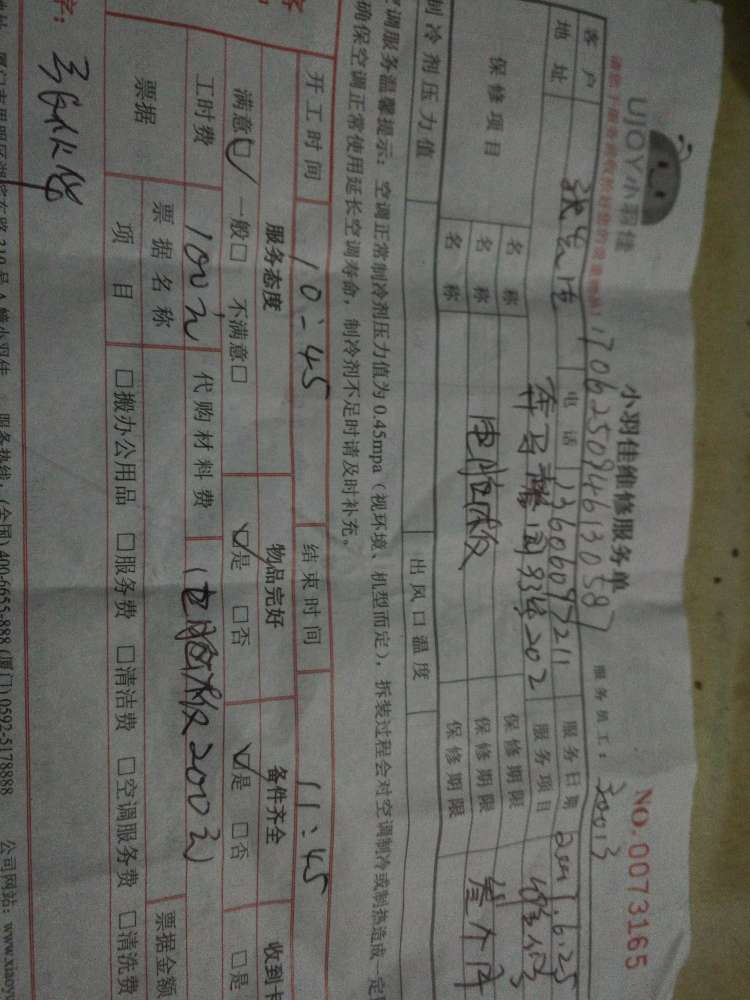 UJOY小羽佳
小羽佳维修服务单
NO.0073165
17062509461305 87
服务员工：30013
客户 电话 13606097211 服务日期 2017.6.25
地址 202 服务项目 维修
保修项目 名称 保修期限
名称 电脑板 保修期限 叁个月
名称 保修期限
制冷剂压力值 出风口温度
空调服务温馨提示：空调正常制冷剂压力值为0.45mpa（视环境、机型而定），拆装过程会对空调制冷或制热造成一定
确保空调正常使用延长空调寿命，制冷剂不足时请及时补充。
开工时间 10:45 结束时间 11:45
服务态度 物品完好 备件齐全 收到卡
满意☑ 一般□ 不满意□ ☑是 □否 ☑是 □否 □是
工时费 100元 代购材料费 (电脑板200元)
票据 票据名称 票据金额
项目 □搬办公用品 □服务费 □清洁费 □空调服务费 □清洗费
310号A幢小羽佳 服务热线：(全国) 400-6655-888 (厦门) 0592-5178888 公司网站：www.xiaoyu